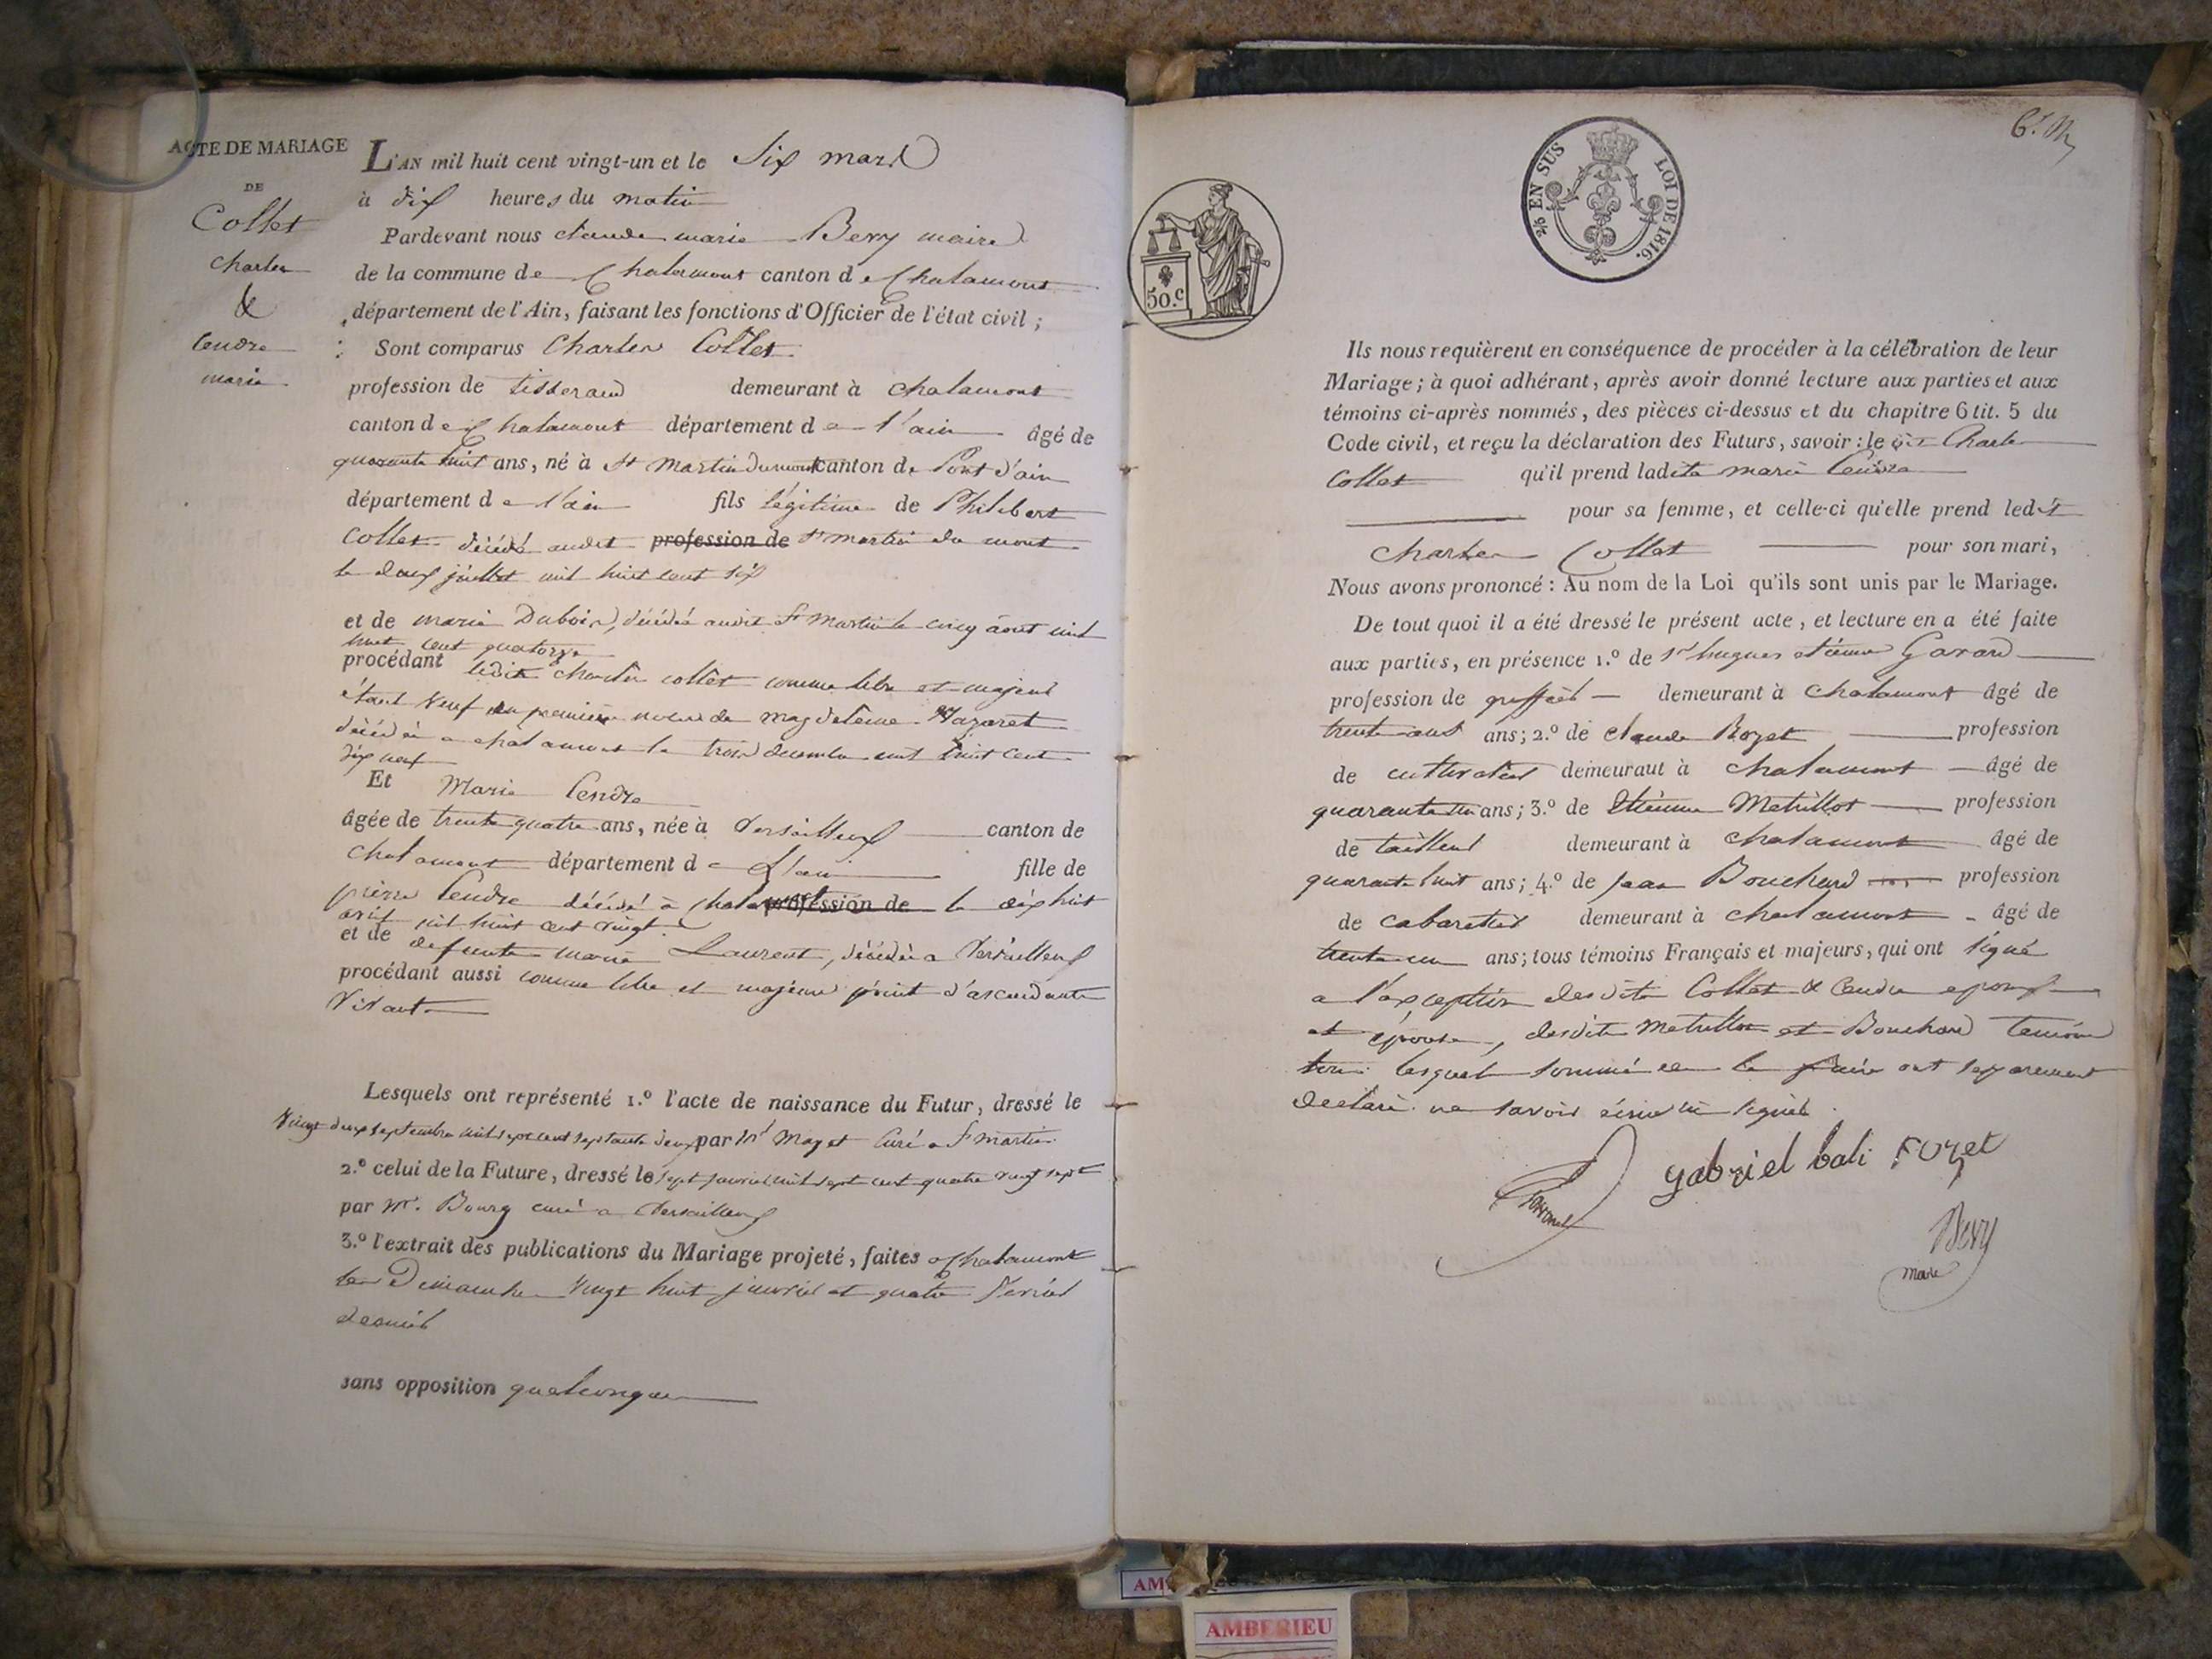 ACTE DE MARIAGE
DE
Collet
Charles
&
Cendre
marie
L'AN mil huit cent vingt-un et le Six mars
à dix heures du matin
Pardevant nous claude marie Bevy maire
de la commune de Chalamont canton de Chalamont
département de l'Ain, faisant les fonctions d'Officier de l'état civil ;
Sont comparus Charles Collet
profession de tisserand demeurant à chalamont
canton de Chalamont département de l'ain âgé de
quarante huit ans, né à St martin du mont canton de Pont d'ain
département de l'ain fils légitime de Philibert
Collet décédé audit profession de St martin du mont
le deux juillet mil huit cent six
et de marie Dubois, décédée audit St martin le cinq août mil
huit cent quatorze
procédant ledit charles collet comme libre et majeur
étant veuf en premières noces de magdeleine
décédée a chalamont le trois decembre mil huit cent
dix neuf
Et Marie Cendre
âgée de trente quatre ans, née à Versailleux canton de
chalamont département de l'ain fille de
pierre Cendre décédé à chalamont profession de le dix huit
avril mil huit cent vingt
et de defunte marie Laurent, décédée a Versailleux
procédant aussi comme libre et majeure point d'ascendants
vivant
Lesquels ont représenté 1.º l'acte de naissance du Futur, dressé le
vingt deux septembre mil sept cent septante deux par Mr Maget Curé a St martin
2.º celui de la Future, dressé le sept janvier mil sept cent quatre vingt sept
par Mr. Bourg curé a Versailleux
3.º l'extrait des publications du Mariage projeté, faites a Chalamont
les Dimanches vingt huit janvier et quatre fevrier
dernier
sans opposition quelconque
50.c
2/5 EN SUS LOI DE 1816.
Ils nous requièrent en conséquence de procéder à la célébration de leur
Mariage ; à quoi adhérant, après avoir donné lecture aux parties et aux
témoins ci-après nommés, des pièces ci-dessus et du chapitre 6 tit. 5 du
Code civil, et reçu la déclaration des Futurs, savoir : le dit Charles
Collet qu'il prend ladite marie Cendre
pour sa femme, et celle-ci qu'elle prend ledit
Charles Collet pour son mari,
Nous avons prononcé : Au nom de la Loi qu'ils sont unis par le Mariage.
De tout quoi il a été dressé le présent acte, et lecture en a été faite
aux parties, en présence 1.º de Sr hugues etienne
profession de greffier demeurant à chalamont âgé de
ans ; 2.º de claude Rozet profession
de cultivateur demeuraut à chalamont âgé de
quarante un ans ; 3.º de Etienne Metrillot profession
de tailleur demeurant à chalamont âgé de
quarante huit ans ; 4.º de jean Bouchard profession
de cabaretier demeurant à chalamont âgé de
trente un ans ; tous témoins Français et majeurs, qui ont signé
a l'exception desdits Collet & Cendre epoux
et épouse, desdits Metrillot et Bouchard temoins
tous lesquels sommé de le faire ont separement
declaré ne savoir écrire ni signer.
gabriel bali rozet
Bevy
maire
AMBERIEU